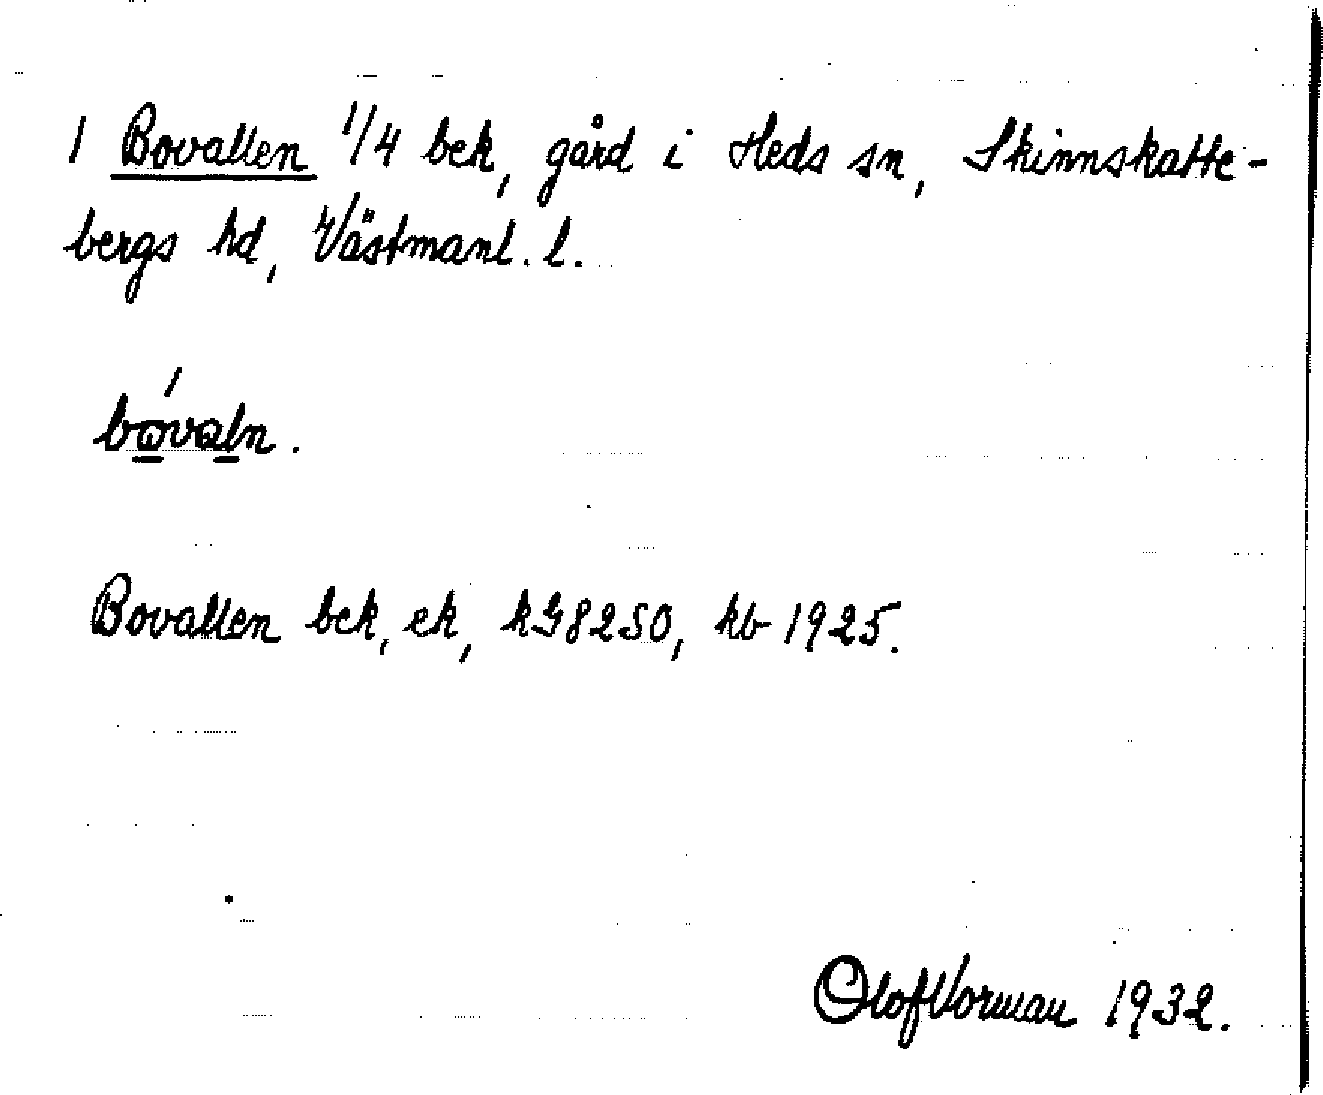 1 Bovallen 1/4 bek, gård i Heds sn, Skinnskatte-
bergs hd, Västmanl. l.
bovaln.
Bovallen bek, ek, kG8250, kb 1925.
Olof Vorman 1932.